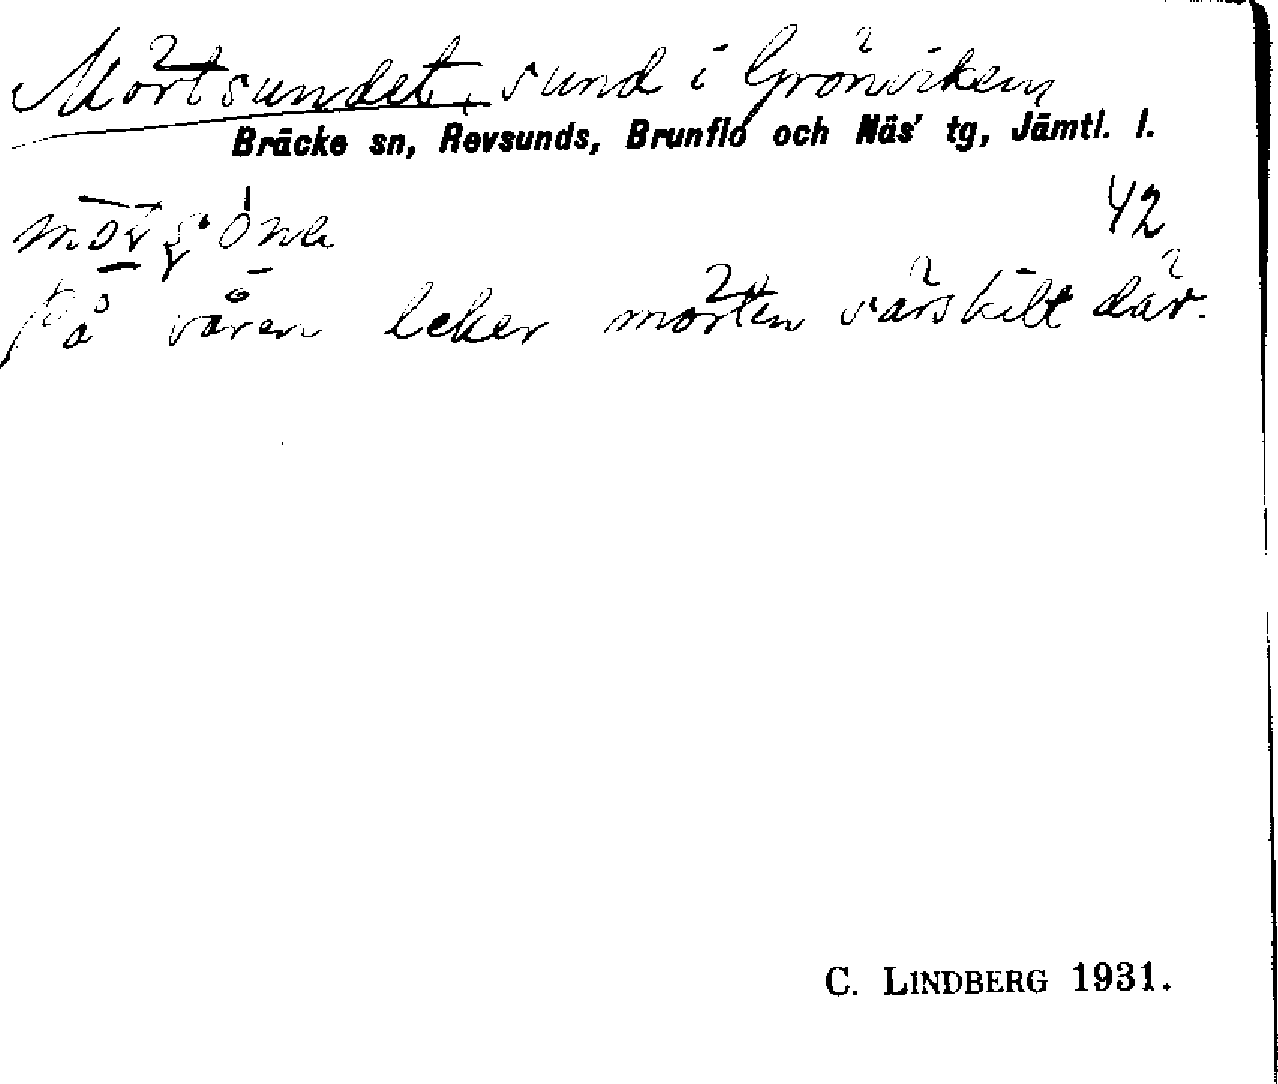 Mörtsundet, sund i Grönviken
Bräcke sn, Revsunds, Brunflo och Näs' tg, Jämtl. l.
42
På våren leker mörten särskilt där.
C. LINDBERG 1931.